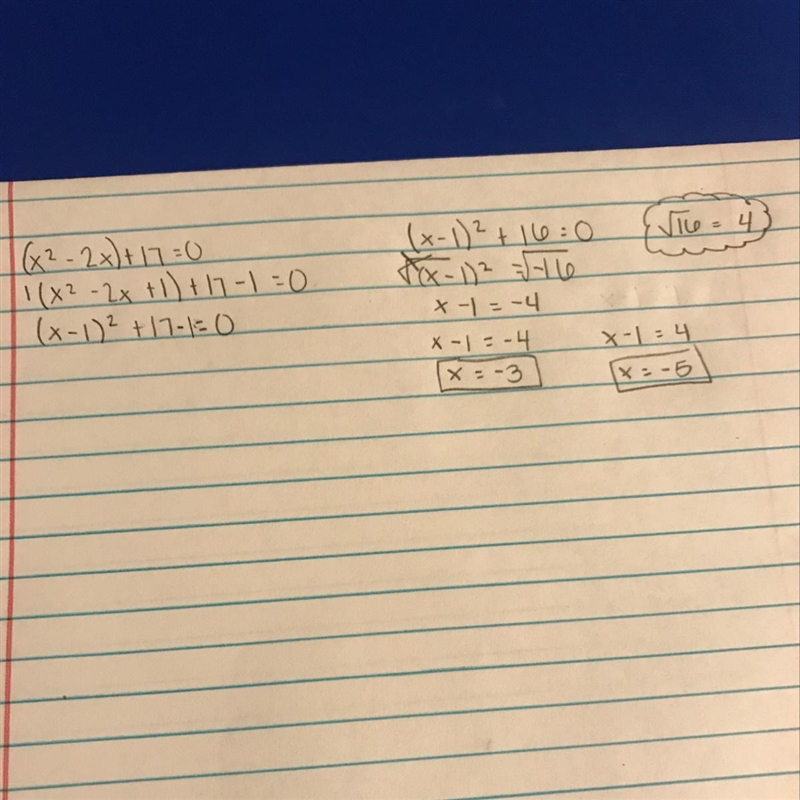 (x² - 2x) + 17 = 0
1(x² - 2x + 1) + 17 - 1 = 0
(x - 1)² + 17 - 1 = 0
(x - 1)² + 16 = 0
√(x - 1)² = √-16
x - 1 = -4
x - 1 = -4
x = -3
x - 1 = 4
x = -5
√16 = 4